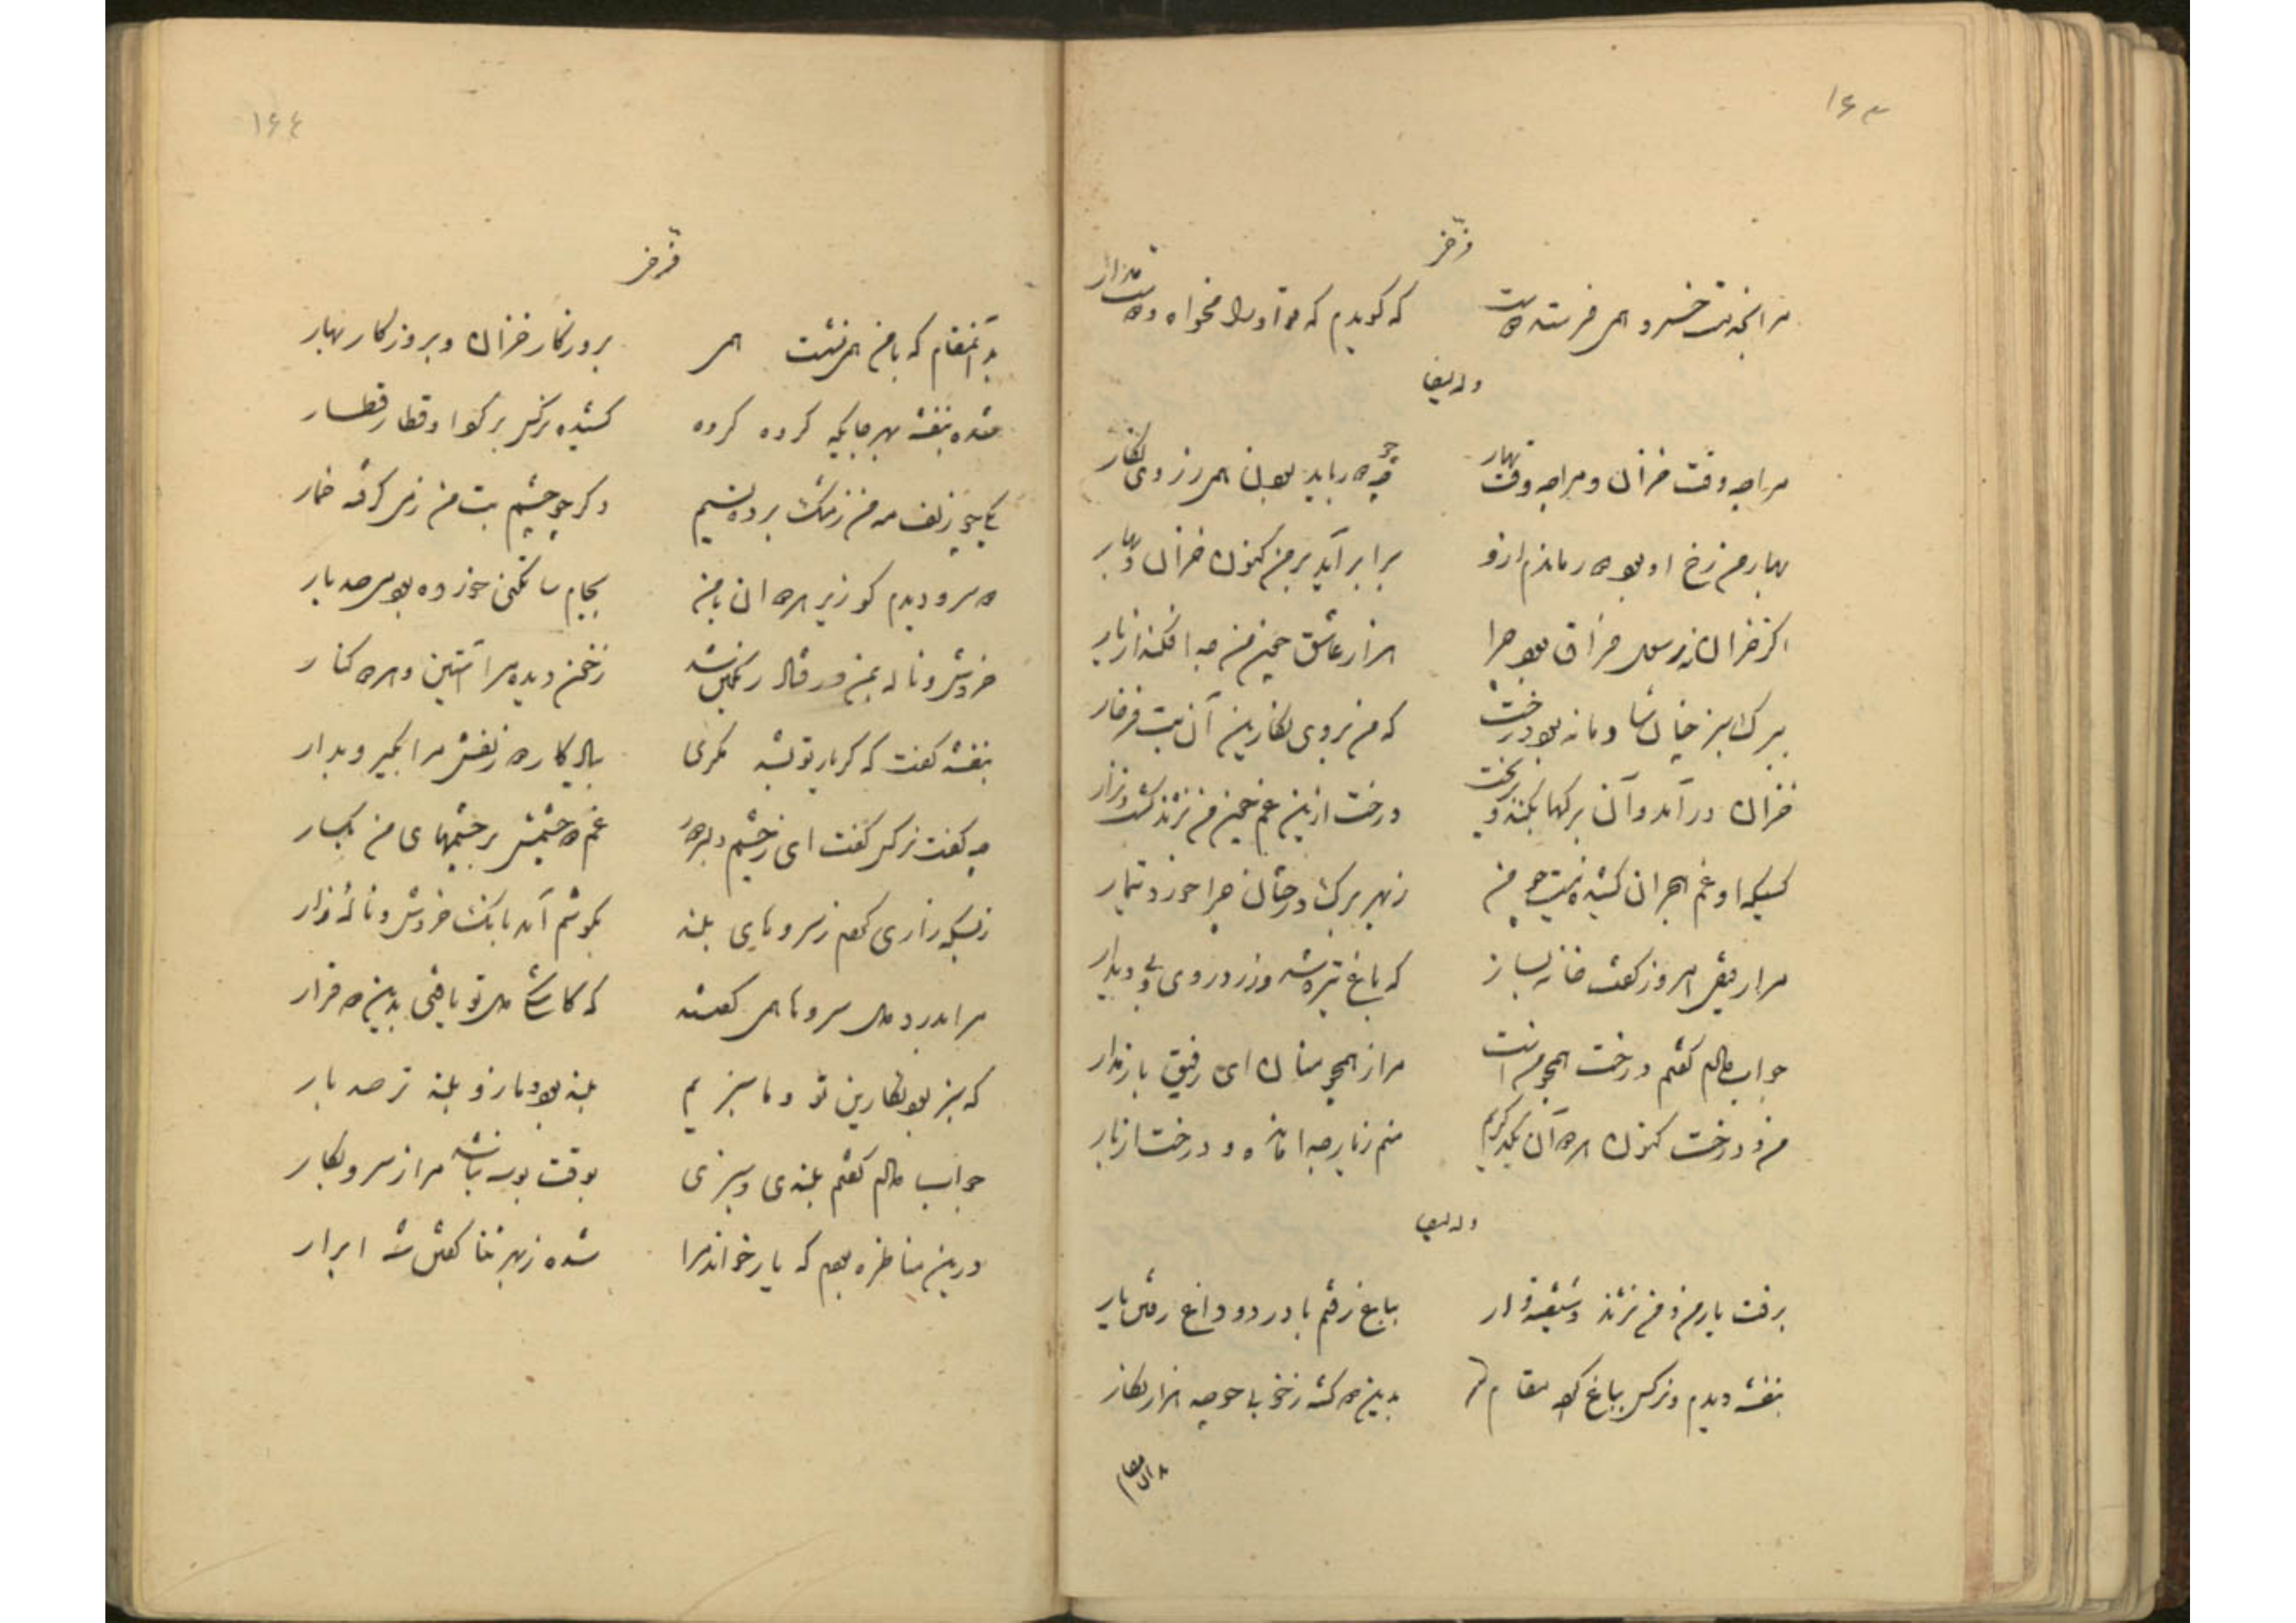 ۱۶۳
فرخی
مرا بخدمت خسرو همی فرستد دوست
که گویدم که مرو او دل مخواه و دوست مدار
وله ایضا
مرا چه وقت خزان و مرا چه وقت بهار
چو دور باید بودن همی ز روی نگار
بهار من رخ او بود و دور ماندم ازو
برابر آید بر من کنون خزان و بهار
اگر خزان نه رسول فراق بود چرا
هزار عاشق چون من جدا فکند از یار
ببرگ سبز چنان شادمانه بود درخت
که من بروی نگارین آن بت فرخار
خزان درآمد و آن برگها بکند و بریخت
درخت ازین غم چون من نژند گشت و نزار
کسیکه او غم هجران کشیده نیست چو من
ز بهر برگ درختان چرا خورد تیمار
مرا رفیقی امروز گفت خانه بساز
که باغ تیره شد و زرد روی و بی دیدار
جواب دادم گفتم درخت همچو منست
مرا ز همچو منان ای رفیق باز مدار
من و درخت کنون هر دوان بیک دگریم
منم ز یار جدا مانده و درخت از بار
وله ایضا
برفت یار من و من نژند و شیفته وار
بباغ رفتم با درد و داغ رفتن یار
بنفشه دیدم و نرگس بباغ کرده مقام
بدین دو گشته ز خوبی باغ چو صد هزار نگار
بدان مقام
۱۶۴
فرخی
بدان مقام که با من همی نشست همی
بروزگار خزان و بروزگار بهار
شده بنفشه بهر جایگه گروه گروه
کشیده نرگس بر گرد او قطار قطار
یکی چو زلف مه من ز مشک برده نسیم
دگر چو چشم بت من ز می گرفته خمار
دو سرو دیدم کو زیر هر دوان با من
بجام ساتگنی خورده بود می صد بار
خروش و ناله بمن در فتاد و رنگین شد
ز خون دیده مرا آستین و هر دو کنار
بنفشه گفت که گر یار تو بشد مگری
بیادگار دو زلفش مرا بگیر و بدار
چه گفت نرگس گفت ای ز چشم دلبر دور
غم دو چشمش بر چشمهای من بگمار
ز بسکه زاری کردم ز سروهای بلند
بگوشم آمد بانگ خروش و نالهٔ زار
مرا بدرد دل سروها همی گفتند
که کاشکی دل تو یافتی بدین دو قرار
که سبز بود نگارین تو و ما سبزیم
بلند بود و ما زو بلند تر صد بار
جواب دادم گفتم بلندی و سبزی
بوقت بوسه نباشد مرا ز سرو بکار
درین مناظره بودم که یار خواند مرا
شده ز بهر ثنا گفتن شه ابرار